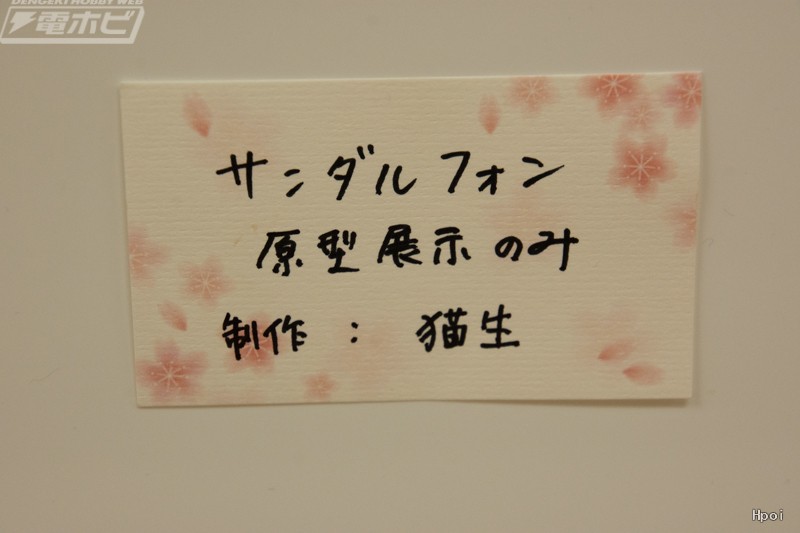 DENGEKI HOBBY WEB
電ホビ
サンダルフォン
原型展示のみ
制作： 猫生
Hpoi